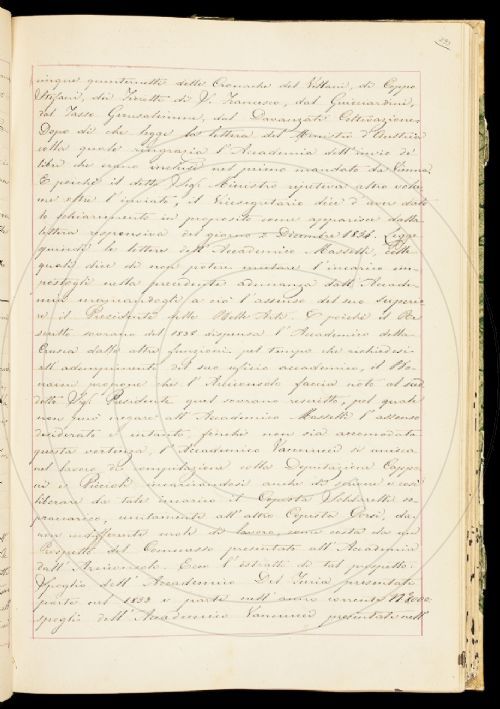 cinque quinternetti delle Cronache del Villani, di Coppo
Stefani, dei Fioretti di S. Francesco, dal Guicciardini,
dal Tasso Gerusalemme, dal Davanzati Coltivazione.
Dopo di che legge la lettera del Ministro d'Austria
colla quale ringrazia l'Accademia dell'invio de'
libri che erano inclusi nel primo mandato da Vienna.
E perchè il detto Sigr. Ministro ripeteva altro volu-
me oltre l'inviato, il Vicesegretario dice d'aver dat-
to schiarimento in proposito come apparisce dalla
lettera responsiva del giorno 2 Decembre 1834. Legge
quindi la lettera dell'Accademico Masselli, colla
quale dice di non potere accettare l'incarico im-
postogli nella precedente adunanza dall'Accade-
mia negandogli a ciò l'assenso del suo Superio-
re il Presidente delle Belle Arti. E poichè il Re-
scritto sovrano del 1832 dispensa l'Accademico della
Crusca dalle altre funzioni, pel tempo che richiedesi
all'adempimento del suo ufizio accademico, il
propone che l'Arciconsolo faccia noto al sud-
detto Sigr. Presidente quel sovrano rescritto, pel quale
non può negare all'Accademico Masselli l'assenso
desiderato e intanto, finchè non sia accomodata
questa vertenza, l'Accademico Vannucci si unisca
nel lavoro di compulazione colla Deputazione Cappo-
ni e Niccoli incaricandosi anche di e così
liberare da tale incarico il Copista so-
praccarico, unitamente all'altro Copista Dorsi, da
una indifferente mole di lavoro, come costa da un
Prospetto del presentato all'Accademia
dall'Arciconsolo. Ecco l'estratto di tal prospetto.
Spoglio dell'Accademico Del Furia presentato
parte nel 1833 e parte nell'anno corrente N° 8000
spoglio dell'Accademico Vannucci presentati nell'